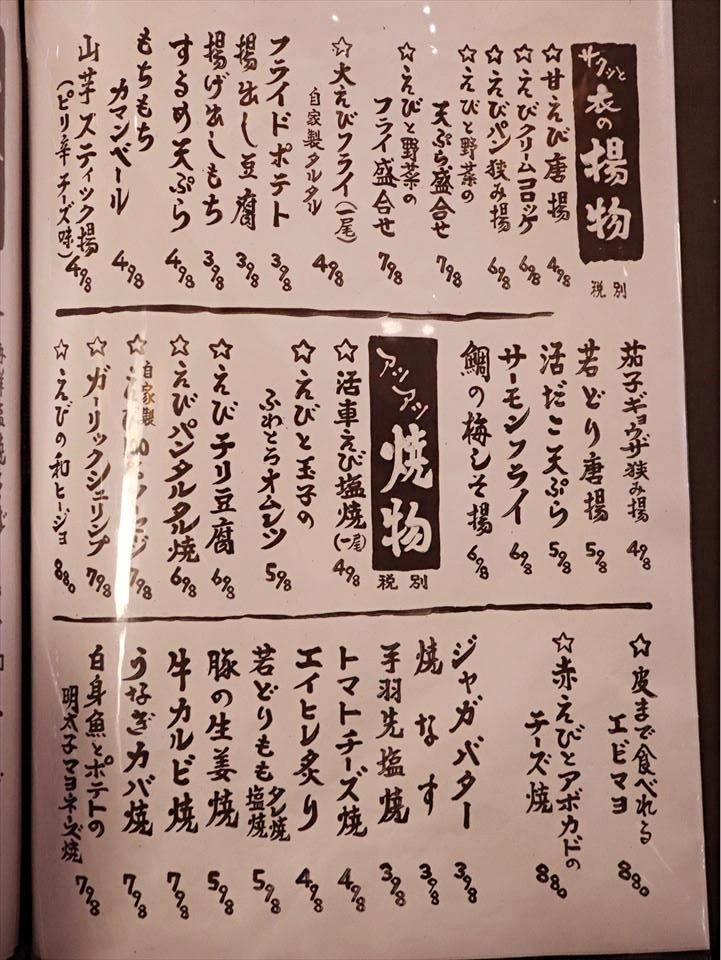 サクッと衣の揚物
税別
☆甘えび唐揚 498
☆えびクリームコロッケ 698
☆えびパン挟み揚 698
☆えびと野菜の
天ぷら盛合せ 798
☆えびと野菜の
フライ盛合せ 798
☆大えびフライ(一尾)
自家製タルタル 498
フライドポテト 398
揚出し豆腐 398
揚げ出しもち 398
するめ天ぷら 498
もちもち
カマンベール 498
山芋スティック揚
(ピリ辛チーズ味) 498
茄子ギョウザ挟み揚 498
若どり唐揚 598
活だこ天ぷら 598
サーモンフライ 698
鯛の梅しそ揚 698
アツアツ焼物
税別
☆活車えび塩焼(一尾) 498
☆えびと玉子の
ふわとろオムレツ 598
☆えびチリ豆腐 698
☆えびパンタルタル焼 698
自家製
798
☆ガーリックシュリンプ 798
☆えびの和ヒージョ 880
☆皮まで食べれる
エビマヨ 880
☆赤えびとアボカドの
チーズ焼 880
ジャガバター 398
焼なす 398
手羽先塩焼 398
トマトチーズ焼 498
エイヒレ炙り 498
若どりもも タレ焼 塩焼 598
豚の生姜焼 598
牛カルビ焼 798
うなぎカバ焼 798
白身魚とポテトの
明太子マヨネーズ焼 798